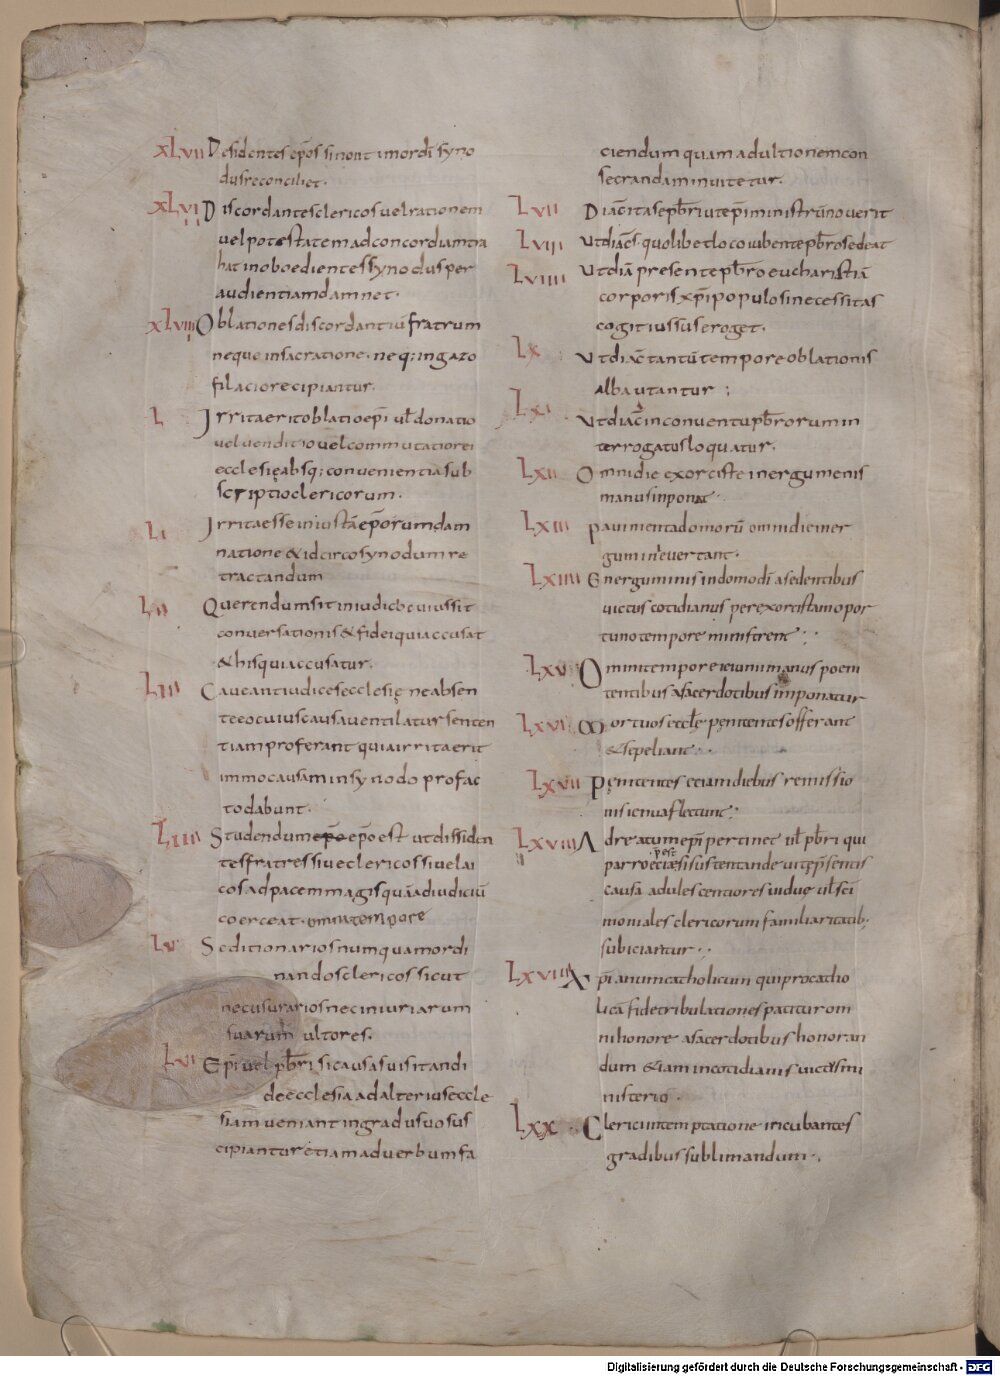 XLVII Desidentes ep̄os si non timor dī syno
dus reconciliet.
XLVIII Discordantes clericos vel rationem
vel potestatem ad concordiam tra
hat inoboedientes synodus per
audientiam damnet.
XLVIIII Oblationes discordantiū fratrum
neque in sacratione. neq; in gazo
filacio recipiantur.
L Irrita erit oblatio ep̄i ul̄ donatio
vel venditio vel commutatio rei
ecclesię absq; conuenientia sub
scriptio clericorum.
LI Irrita esse iniustā ep̄orum dam
natione & idcirco synodum re
tractandum
LII Querendum sit in iudicio cuius sit
conversationis & fidei qui accusat
& his qui accusatur.
LIII Caueant iudices ecclesię ne absen
te eo cuius causa uentilatur senten
tiam proferant quia irrita erit
immo causam in synodo pro fac
to dabunt.
LIIII Studendum ep̄o ep̄o est ut dissiden
tes fratres siue clericos siue lai
cos ad pacem magis quā ad iudiciū
coerceat. omni tempore
LV Seditionarios numquam ordi
nandos clericos sicut
nec usurarios nec iniuriarum
suarum ultores.
LVI Ep̄i uel p̄bri si causa uisitandi
de ecclesia ad alterius eccle
siam ueniant in gradu suo sus
cipiantur etiam ad uerbum fa
ciendum quam ad ultionem con
secrandam inuitetur.
LVII Diac̄ ita se p̄bri ut ep̄i ministrū nouerit
LVIII Ut diac̄s. quolibet loco iubente p̄bro sedeat
LVIIII Ut diā presente p̄bro eucharistiā
corporis xp̄i populo si necessitas
cogit iussus eroget.
LX Ut diac̄ tantū tempore oblationis
alba utantur :
LXI Ut diac̄ in conuentu p̄brorum in
terrogatus loquatur.
LXII Omni die exorciste inergumenis
manus inponat.
LXIII Pauimenta domorū omni die iner
gumin euertant.
LXIIII Energuminis in domo dī asedentibus
uictus cotidianus per exorcistam opor
tuno tempore ministrent :
LXV Omni tempore ieiuni manus poeni
tentibus a sacerdotibus imponatur
LXVI Mortuos eccl̄ę pęnitentes offerant
& sepeliant.
LXVII Pęnitentes etiam diebus remissio
nis ienua flectent :
LXVIII Ad reatum ep̄i pertinet ul̄ p̄bri qui
parroeciæ si sustentande uitę p̄sentis
post
causa adulescentiores induę ul̄ sci
moniales clericorum familiaritatib.
subiciantur.
LXVIIII Xp̄ianum catholicum qui pro catho
lica fide tribulationes patitur om
ni honore a sacerdotibus honoran
dum & iam in cotidianis uictus mi
nisterio.
LXX Clerici in temptatione incubantes
gradibus sublimandum.
Digitalisierung gefördert durch die Deutsche Forschungsgemeinschaft - DFG